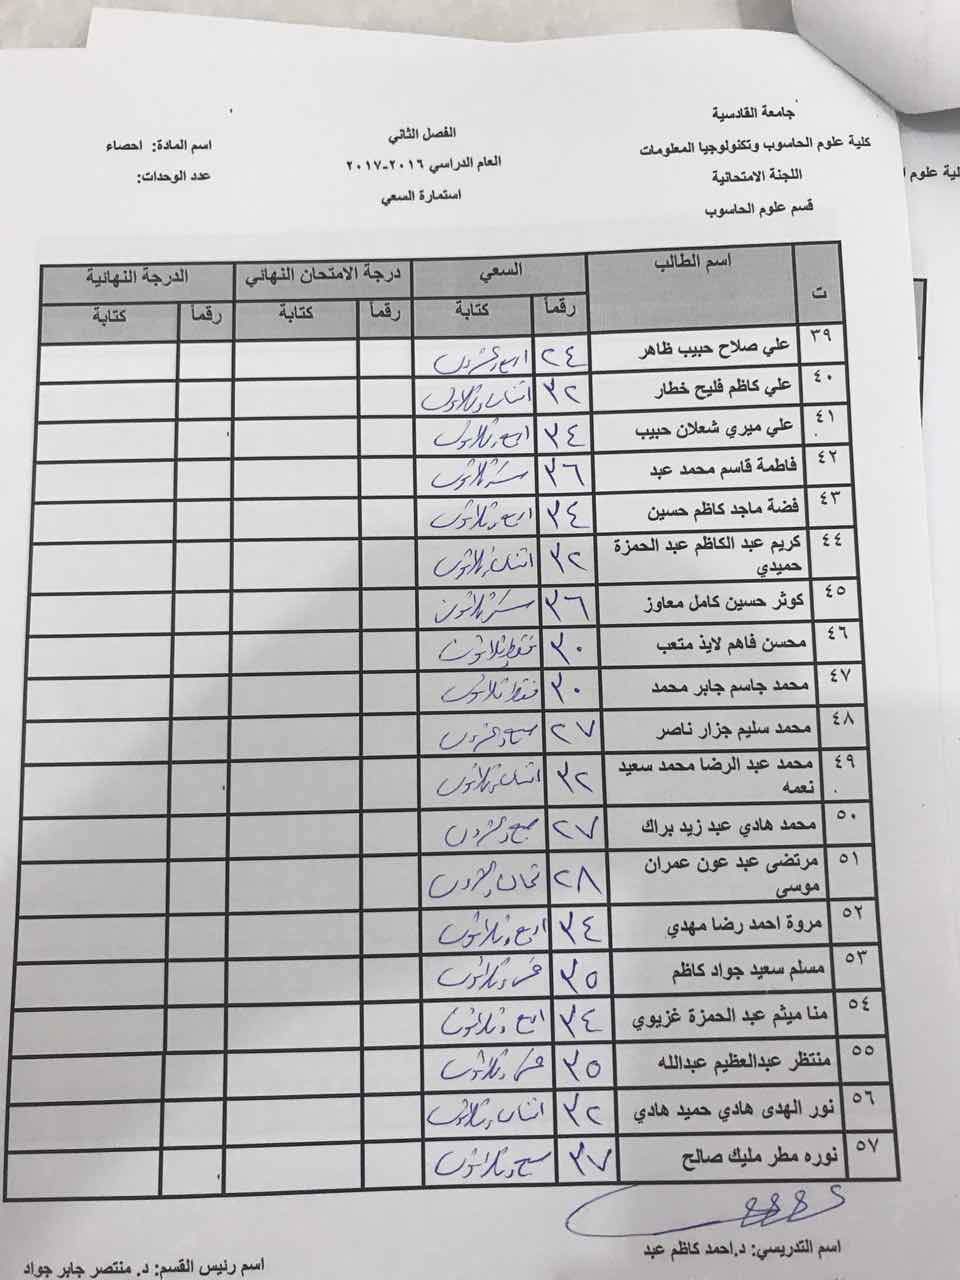 جامعة القادسية
كلية علوم الحاسوب وتكنولوجيا المعلومات
اللجنة الامتحانية
قسم علوم الحاسوب
الفصل الثاني
العام الدراسي ٢٠١٦-٢٠١٧
استمارة السعي
اسم المادة: احصاء
عدد الوحدات:
لية علوم ا
ت اسم الطالب السعي درجة الامتحان النهائي الدرجة النهائية
رقماً كتابة رقماً كتابة رقماً كتابة
٣٩ علي صلاح حبيب ظاهر ٢٤ اربع وعشرون
٤٠ علي كاظم فليح خطار ٣٢ اثنان وثلاثون
٤١ علي ميري شعلان حبيب ٣٤ اربع وثلاثون
٤٢ فاطمة قاسم محمد عبد ٣٦ ستة وثلاثون
٤٣ فضة ماجد كاظم حسين ٣٤ اربع وثلاثون
٤٤ كريم عبد الكاظم عبد الحمزة حميدي ٣٢ اثنان وثلاثون
٤٥ كوثر حسين كامل معاوز ٣٦ ستة وثلاثون
٤٦ محسن فاهم لايذ متعب ٣٠ فقط ثلاثون
٤٧ محمد جاسم جابر محمد ٣٠ فقط ثلاثون
٤٨ محمد سليم جزار ناصر ٢٧ سبع وعشرون
٤٩ محمد عبد الرضا محمد سعيد نعمه ٣٢ اثنان وثلاثون
٥٠ محمد هادي عبد زيد براك ٢٧ سبع وعشرون
٥١ مرتضى عبد عون عمران موسى ٢٨ ثمان وعشرون
٥٢ مروة احمد رضا مهدي ٣٤ اربع وثلاثون
٥٣ مسلم سعيد جواد كاظم ٣٥ خمس وثلاثون
٥٤ منا ميثم عبد الحمزة غزيوي ٣٤ اربع وثلاثون
٥٥ منتظر عبدالعظيم عبدالله ٣٥ خمس وثلاثون
٥٦ نور الهدى هادي حميد هادي ٣٢ اثنان وثلاثون
٥٧ نوره مطر مليك صالح ٣٧ سبع وثلاثون
اسم التدريسي: د.احمد كاظم عبد
اسم رئيس القسم: د. منتصر جابر جواد